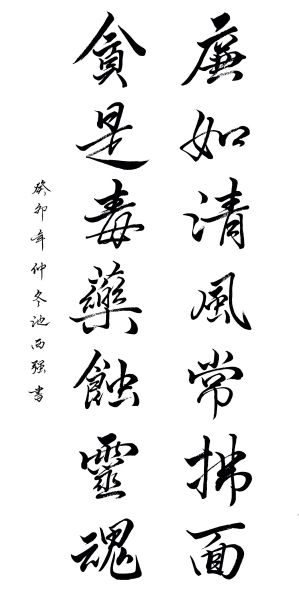 廉如清風常拂面
貪是毒藥蝕靈魂
癸卯年仲冬池西强書